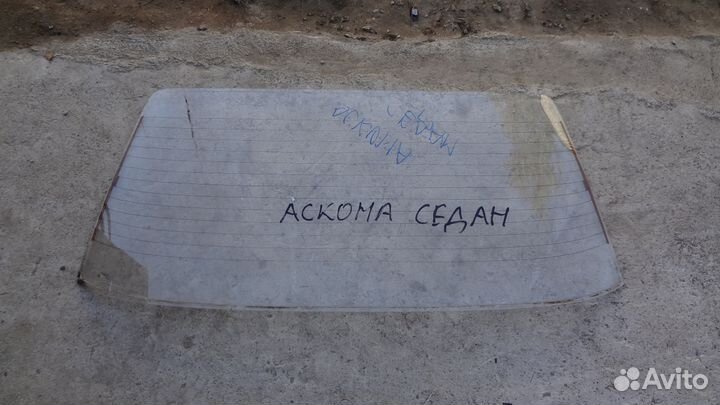 АСКОМА СЕДАН
Avito